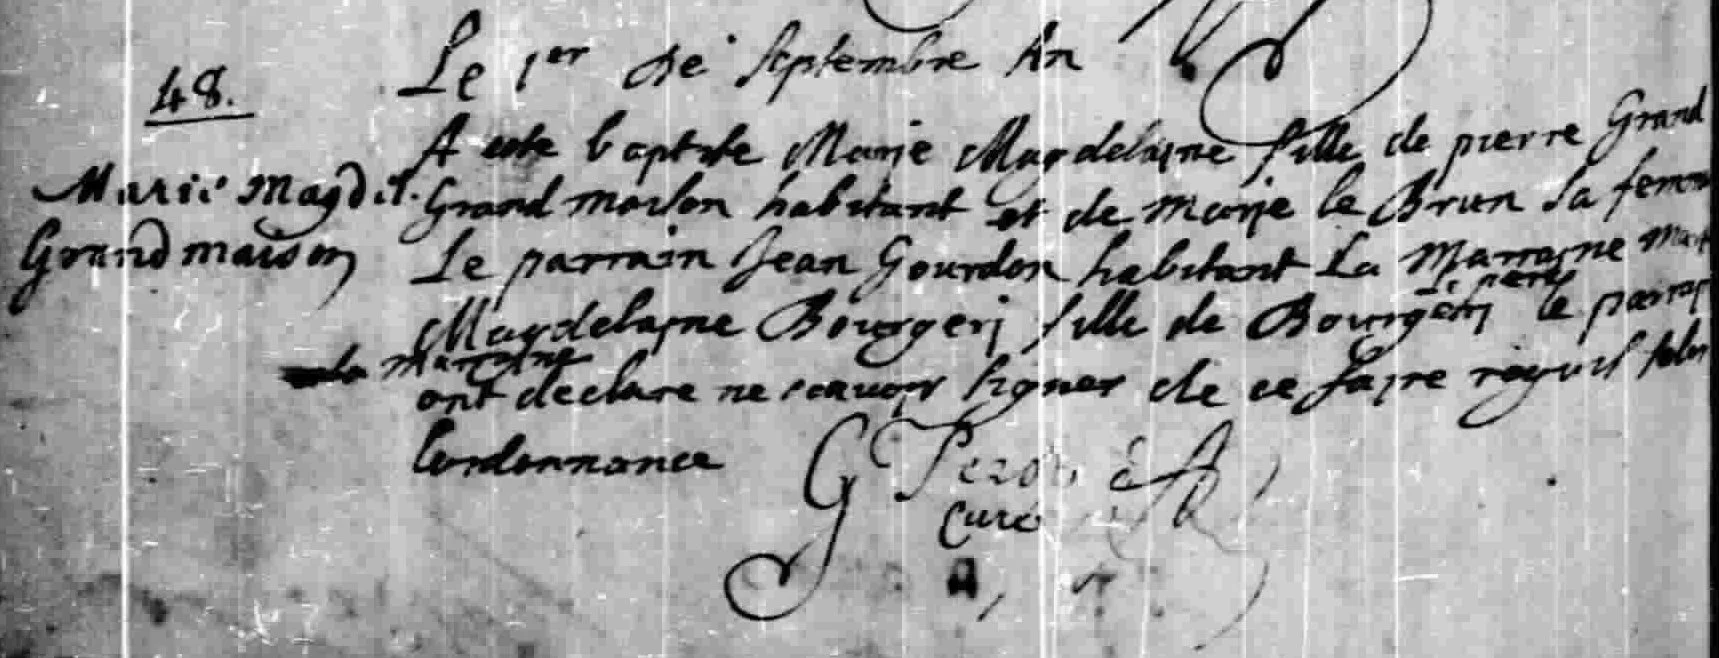 48.
Marie Magdel.
Grand maison
Le 1er de septembre An
A este baptste Marie Magdelayne fille de pierre Grand
Grand maison habitant et de marie le Brun sa femme
Le parrain Jean Gourdon habitant La Marrayne
Magdelayne Bourgerj fille de Bourgerj le
la marrayne
ont declare ne scauoyr signer de ce fayre
lordonnance
G
Curé